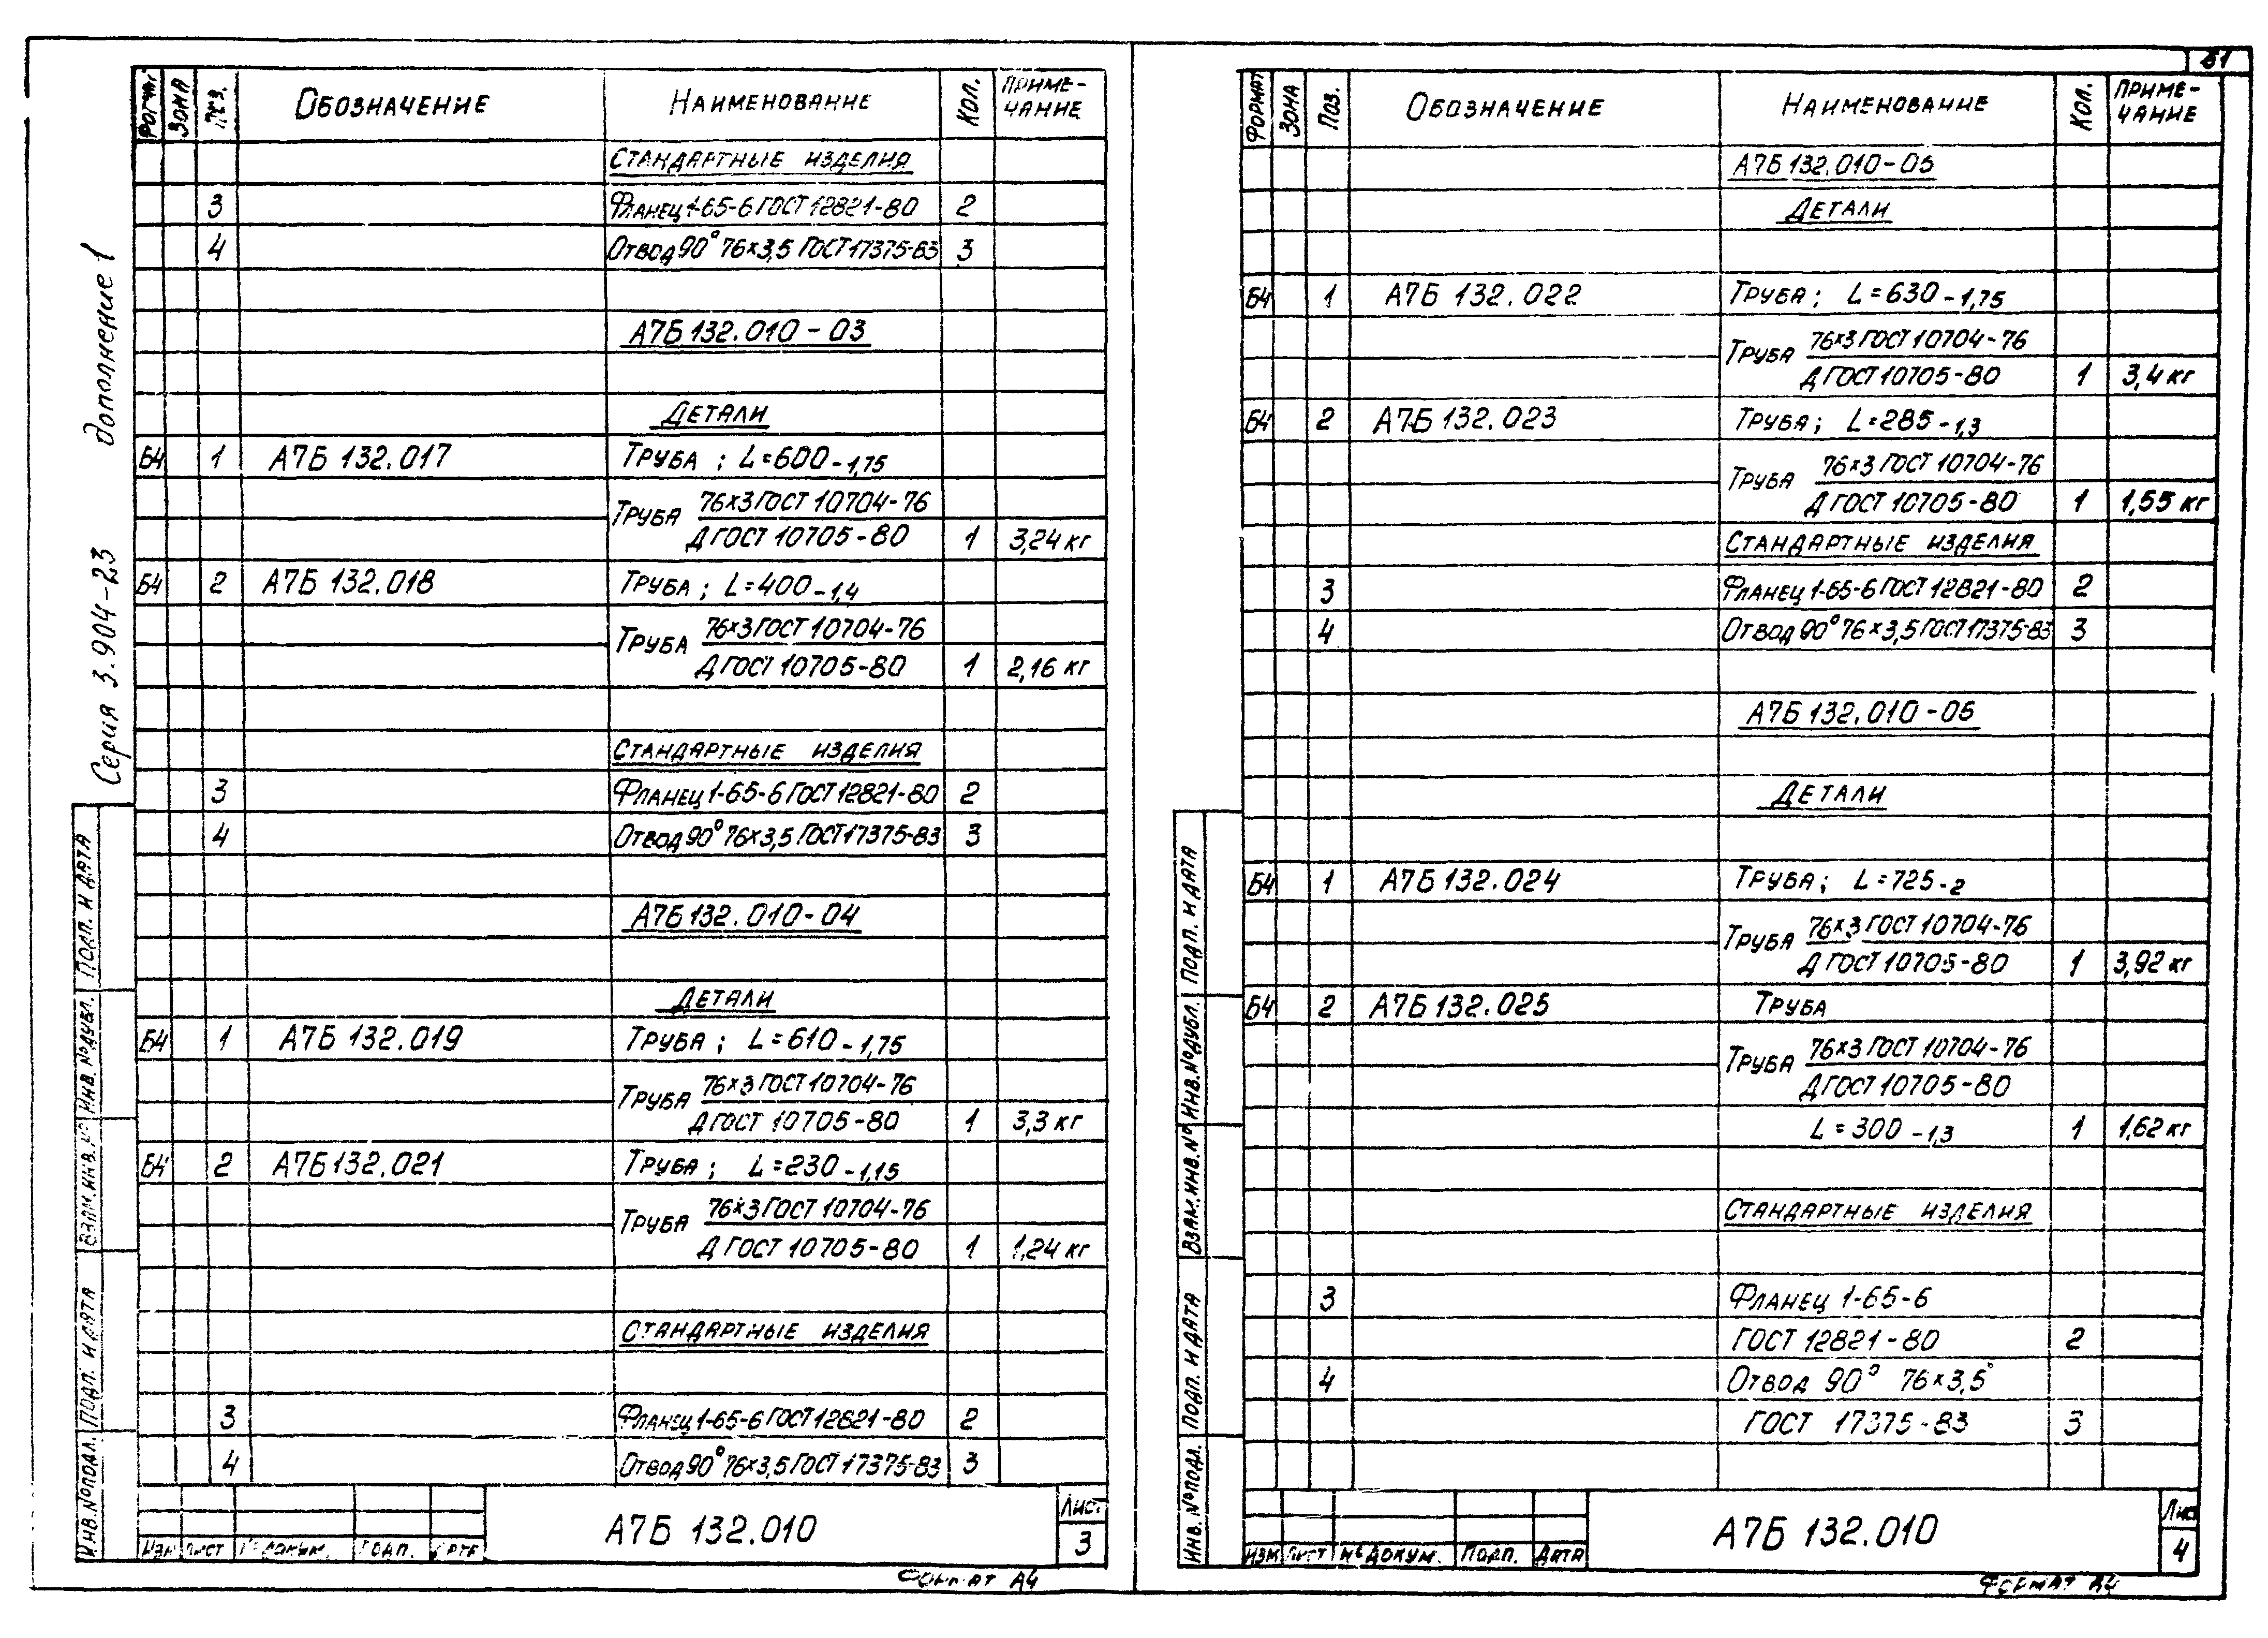 Серия 3.904-23 дополнение 1
Формат Зона Поз. Обозначение Наименование Кол. Приме-
чание
Стандартные изделия
3 Фланец 1-65-6 ГОСТ 12821-80 2
4 Отвод 90° 76×3,5 ГОСТ 17375-83 3
А7Б 132.010-03
Детали
Б4 1 А7Б 132.017 Труба ; L=600-1,75
Труба 76×3 ГОСТ 10704-76
Д ГОСТ 10705-80 1 3,24 кг
Б4 2 А7Б 132.018 Труба ; L=400-1,4
Труба 76×3 ГОСТ 10704-76
Д ГОСТ 10705-80 1 2,16 кг
Стандартные изделия
3 Фланец 1-65-6 ГОСТ 12821-80 2
4 Отвод 90° 76×3,5 ГОСТ 17375-83 3
А7Б 132.010-04
Детали
Б4 1 А7Б 132.019 Труба ; L=610-1,75
Труба 76×3 ГОСТ 10704-76
Д ГОСТ 10705-80 1 3,3 кг
Б4 2 А7Б 132.021 Труба ; L=230-1,15
Труба 76×3 ГОСТ 10704-76
Д ГОСТ 10705-80 1 1,24 кг
Стандартные изделия
3 Фланец 1-65-6 ГОСТ 12821-80 2
4 Отвод 90° 76×3,5 ГОСТ 17375-83 3
Инв. № подл. Подп. и дата Взам. инв. № Инв. № дубл. Подп. и дата
Изм Лист № докум. Подп. Дата
А7Б 132.010
Лист
3
Формат А4
51
Формат Зона Поз. Обозначение Наименование Кол. Приме-
чание
А7Б 132.010-05
Детали
Б4 1 А7Б 132.022 Труба ; L=630-1,75
Труба 76×3 ГОСТ 10704-76
Д ГОСТ 10705-80 1 3,4 кг
Б4 2 А7Б 132.023 Труба ; L=285-1,3
Труба 76×3 ГОСТ 10704-76
Д ГОСТ 10705-80 1 1,55 кг
Стандартные изделия
3 Фланец 1-65-6 ГОСТ 12821-80 2
4 Отвод 90° 76×3,5 ГОСТ 17375-83 3
А7Б 132.010-06
Детали
Б4 1 А7Б 132.024 Труба ; L=725-2
Труба 76×3 ГОСТ 10704-76
Д ГОСТ 10705-80 1 3,92 кг
Б4 2 А7Б 132.025 Труба
Труба 76×3 ГОСТ 10704-76
Д ГОСТ 10705-80
L=300-1,3 1 1,62 кг
Стандартные изделия
3 Фланец 1-65-6
ГОСТ 12821-80 2
4 Отвод 90° 76×3,5
ГОСТ 17375-83 3
Инв. № подл. Подп. и дата Взам. инв. № Инв. № дубл. Подп. и дата
Изм Лист № докум. Подп. Дата
А7Б 132.010
Лист
4
Формат А4